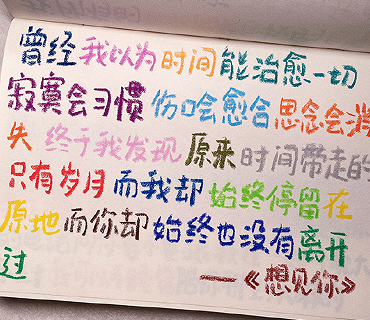 曾经我以为时间能治愈一切
寂寞会习惯 伤口会愈合 思念会消
失 终于我发现 原来时间带走的
只有岁月 而我却始终停留在
原地而你却始终也没有离开
过
——《想见你》